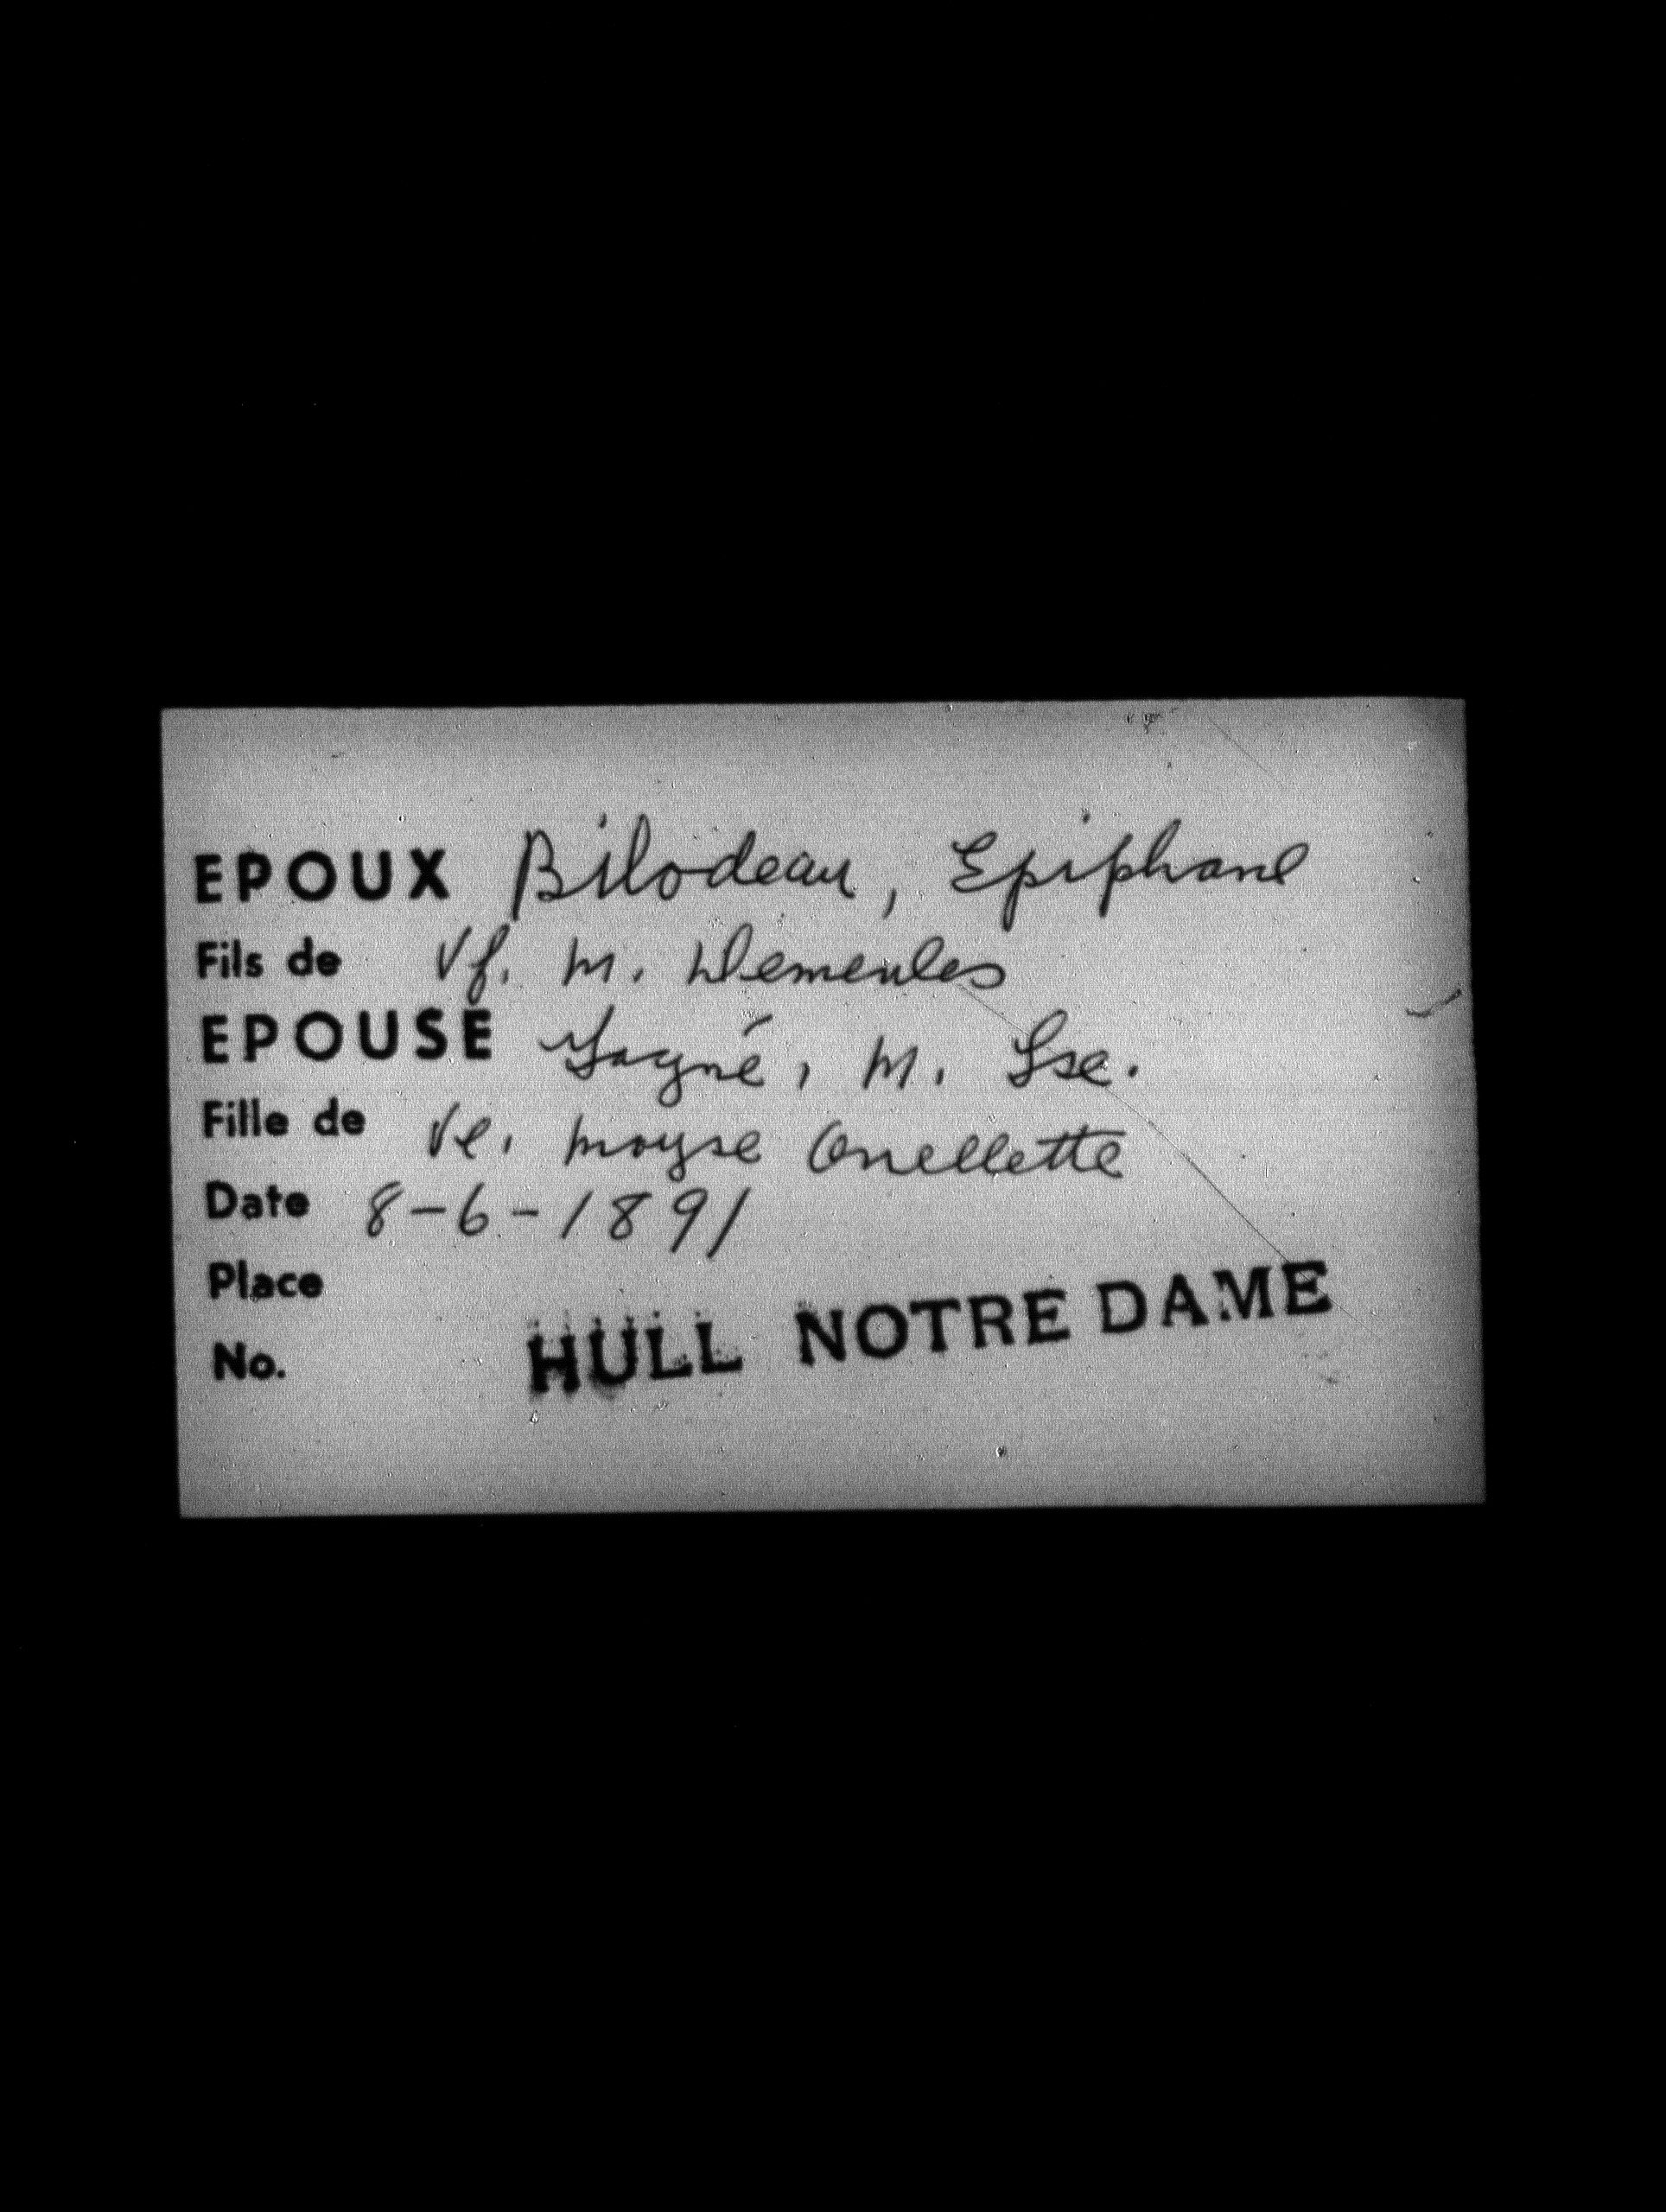 EPOUX Bilodeau, Epiphane
Fils de Vf. M. Demeules
EPOUSE Gagné, M. Lse.
Fille de Ve. Moyse Ouellette
Date 8-6-1891
Place
No. HULL NOTRE DAME